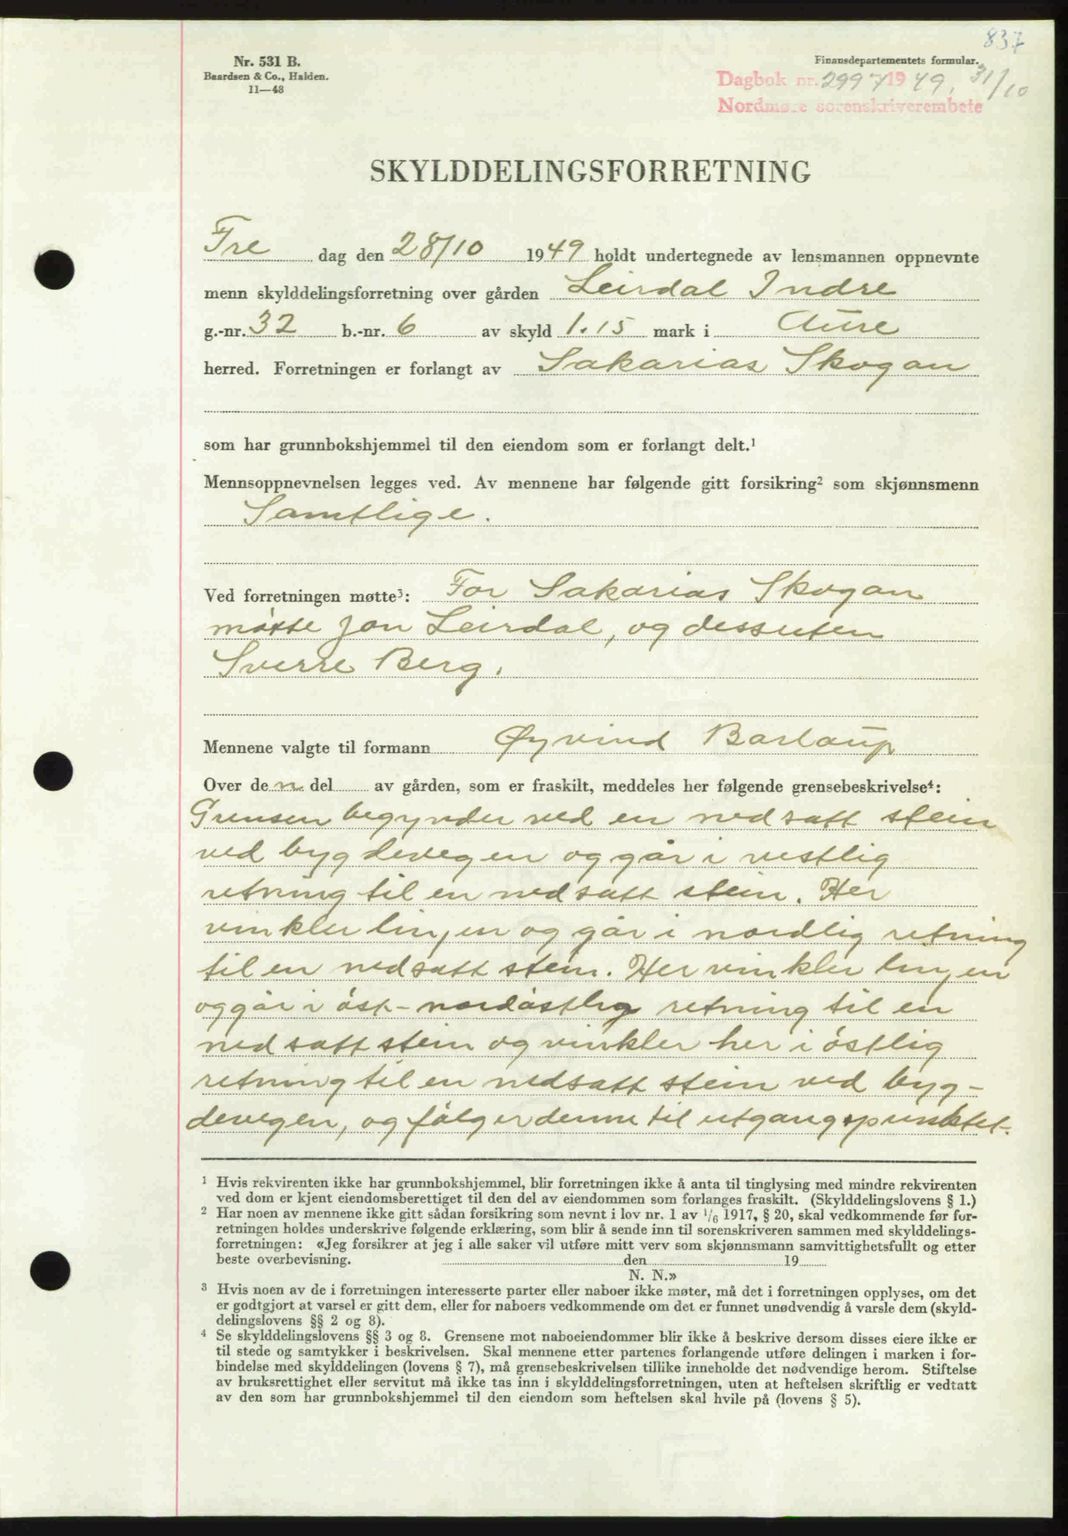 837
Nr. 531 B.
Baardsen & Co., Halden.
11—48
Finansdepartementets formular.
Dagbok nr. 2997 1949, 31/10
Nordmøre sorenskriverembete
SKYLDDELINGSFORRETNING
Fre dag den 28/10 1949 holdt undertegnede av lensmannen oppnevnte
menn skylddelingsforretning over gården Leirdal Indre
g.-nr. 32 b.-nr. 6 av skyld 1.15 mark i Aure
herred. Forretningen er forlangt av Sakarias Skogan
som har grunnbokshjemmel til den eiendom som er forlangt delt.¹
Mennsoppnevnelsen legges ved. Av mennene har følgende gitt forsikring² som skjønnsmenn
Samtlige.
Ved forretningen møtte³: For Sakarias Skogan
møtte Jon Leirdal, og dessuten
Sverre Berg.
Mennene valgte til formann Øyvind Barlaup
Over den del av gården, som er fraskilt, meddeles her følgende grensebeskrivelse⁴:
Grensen begynder ved en nedsatt stein
ved bygdevegen og går i vestlig
retning til en nedsatt stein. Her
vinkler linjen og går i nordlig retning
til en nedsatt stein. Her vinkler linjen
og går i öst-nordöstlig retning til en
nedsatt stein og vinkler her i östlig
retning til en nedsatt stein ved byg-
devegen, og fölger denne til utgangspunktet.
¹ Hvis rekvirenten ikke har grunnbokshjemmel, blir forretningen ikke å anta til tinglysing med mindre rekvirenten
ved dom er kjent eiendomsberettiget til den del av eiendommen som forlanges fraskilt. (Skylddelingslovens § 1.)
² Har noen av mennene ikke gitt sådan forsikring som nevnt i lov nr. 1 av 1/6 1917, § 20, skal vedkommende før for-
retningen holdes underskrive følgende erklæring, som blir å sende inn til sorenskriveren sammen med skylddelings-
forretningen: «Jeg forsikrer at jeg i alle saker vil utføre mitt verv som skjønnsmann samvittighetsfullt og etter
beste overbevisning. den 19
N. N.»
³ Hvis noen av de i forretningen interesserte parter eller naboer ikke møter, må det i forretningen opplyses, om det
er godtgjort at varsel er gitt dem, eller for naboers vedkommende om det er funnet unødvendig å varsle dem (skyld-
delingslovens §§ 2 og 8).
⁴ Se skylddelingslovens §§ 3 og 8. Grensene mot naboeiendommer blir ikke å beskrive dersom disses eiere ikke er
til stede og samtykker i beskrivelsen. Skal mennene etter partenes forlangende utføre delingen i marken i for-
bindelse med skylddelingen (lovens § 7), må grensebeskrivelsen tillike inneholde det nødvendige herom. Stiftelse
av bruksrettighet eller servitut må ikke tas inn i skylddelingsforretningen, uten at heftelsen skriftlig er vedtatt
av den som har grunnbokshjemmel til den eiendom som heftelsen skal hvile på (lovens § 5).